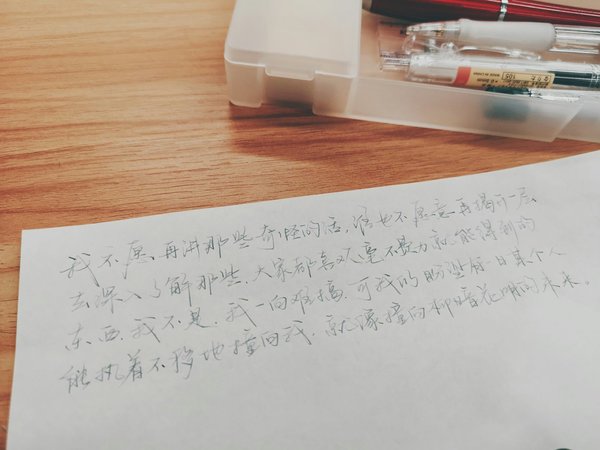 我不愿再讲那些奇怪的话,谁也不愿意再揭开一层
去深入了解那些.大家都喜欢毫不费力就能得到的
东西.我不是.我一向难搞.可我的盼望有一日某个人
能执着不移地撞向我.就像撞向柳暗花明的未来。